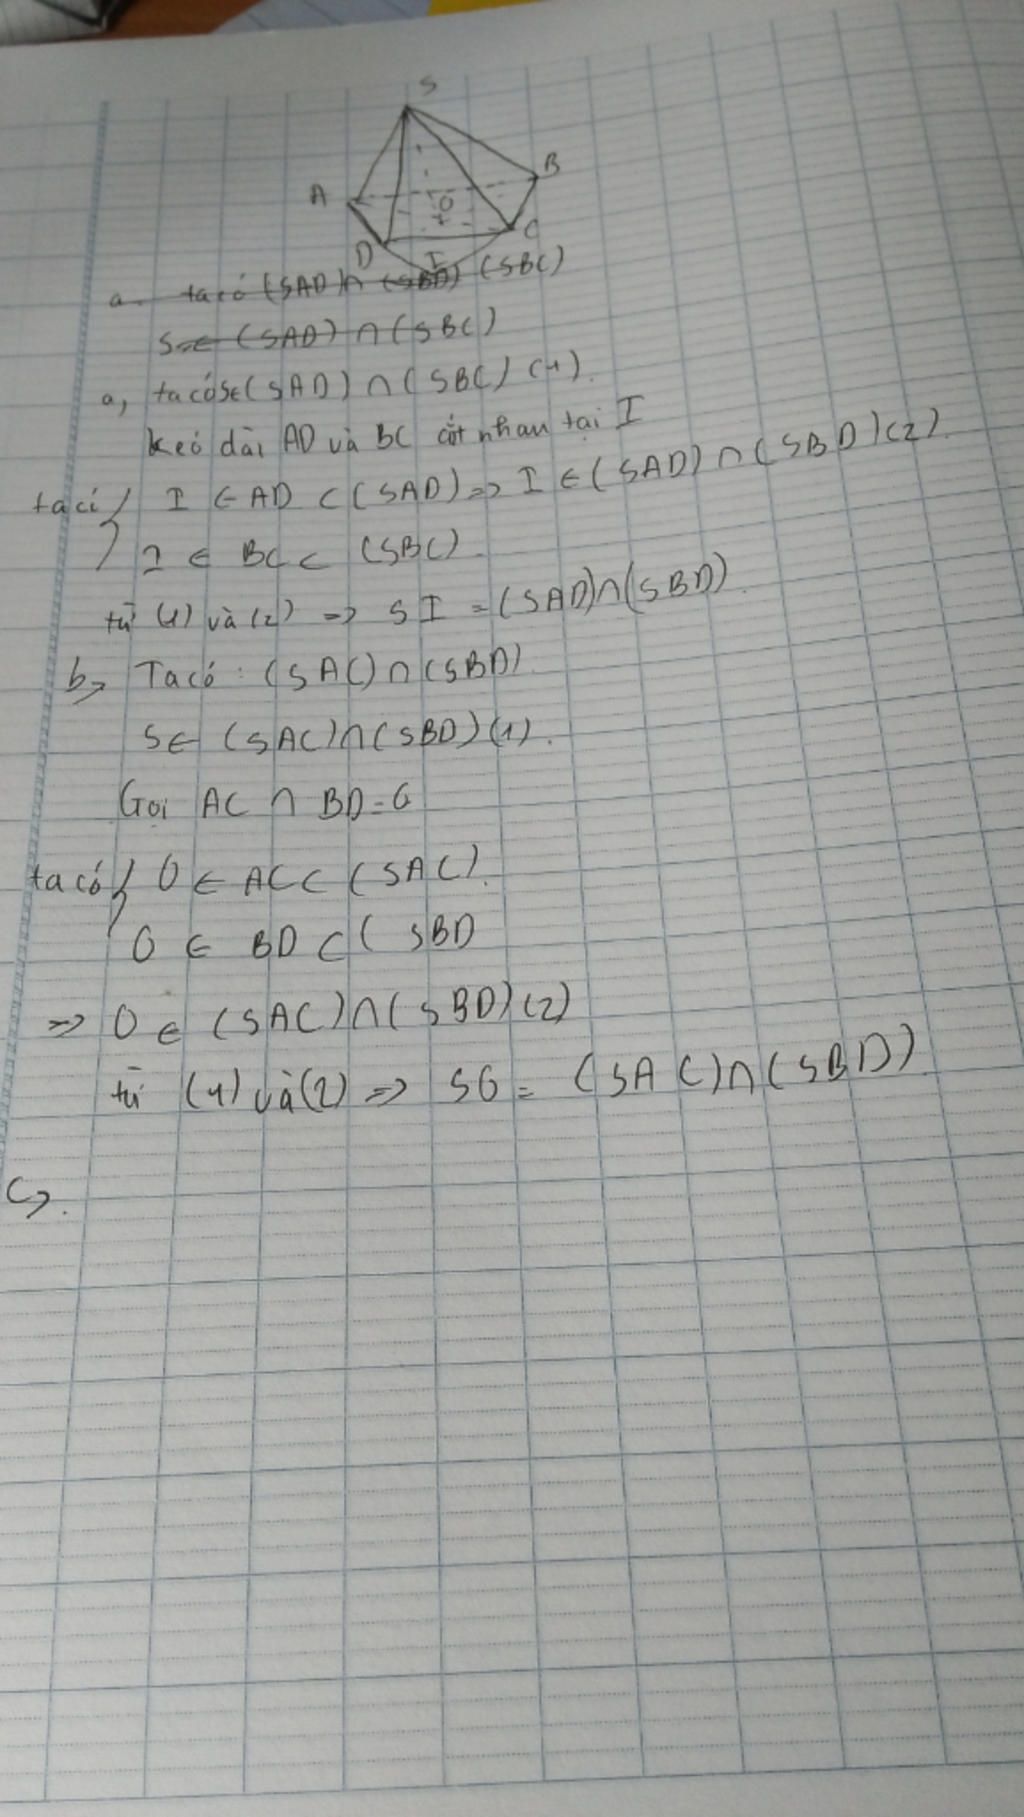 S
A
B
O
D
C
I
a. ta có (SAD)∩ (SBD) (SBC)
S∈ (SAD) ∩ (SBC)
a, ta có S∈(SAD) ∩ (SBC) (1).
Keó dài AD và BC cắt nhau tại I
ta cí { I ∈ AD ⊂ (SAD) => I ∈ (SAD) ∩ (SBD) (2)
I ∈ BC ⊂ (SBC)
từ (1) và (2) => SI = (SAD)∩(SBD).
b, Ta có: (SAC)∩(SBD)
S∈ (SAC)∩(SBD) (1).
Gọi AC ∩ BD=O
ta có { O ∈ AC ⊂ (SAC).
O ∈ BD ⊂ ( SBD
=> O ∈ (SAC)∩(SBD) (2)
từ (1) và (2) => SO = (SAC)∩(SBD)
C, .